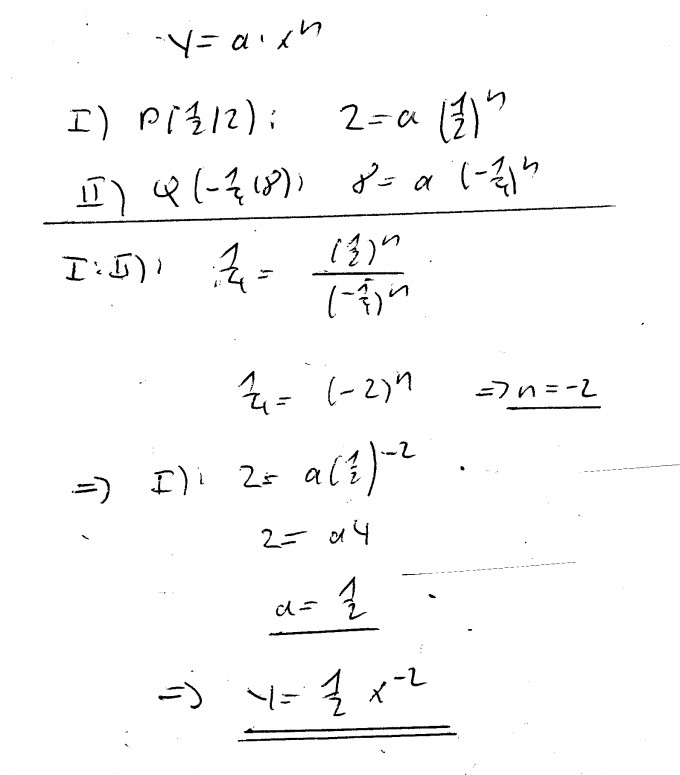 y = a · xⁿ
I) P(½|2): 2 = a (½)ⁿ
II) Q(-¼|8): 8 = a (-¼)ⁿ
I:II): ¼ = (½)ⁿ / (-¼)ⁿ
¼ = (-2)ⁿ => n = -2
=> I): 2 = a(½)⁻²
2 = a4
a = ½
=> y = ½ x⁻²